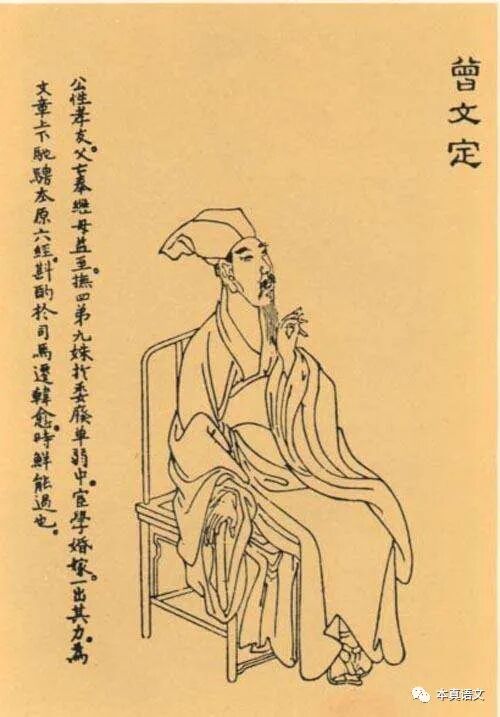 曾文定
公性孝友。父亡奉繼母益至。撫四弟九妹於委廢單弱中。宦學婚嫁一出其力。為
文章上下馳騁本原六經。斟酌於司馬遷韓愈。時鮮能過也。
本真语文